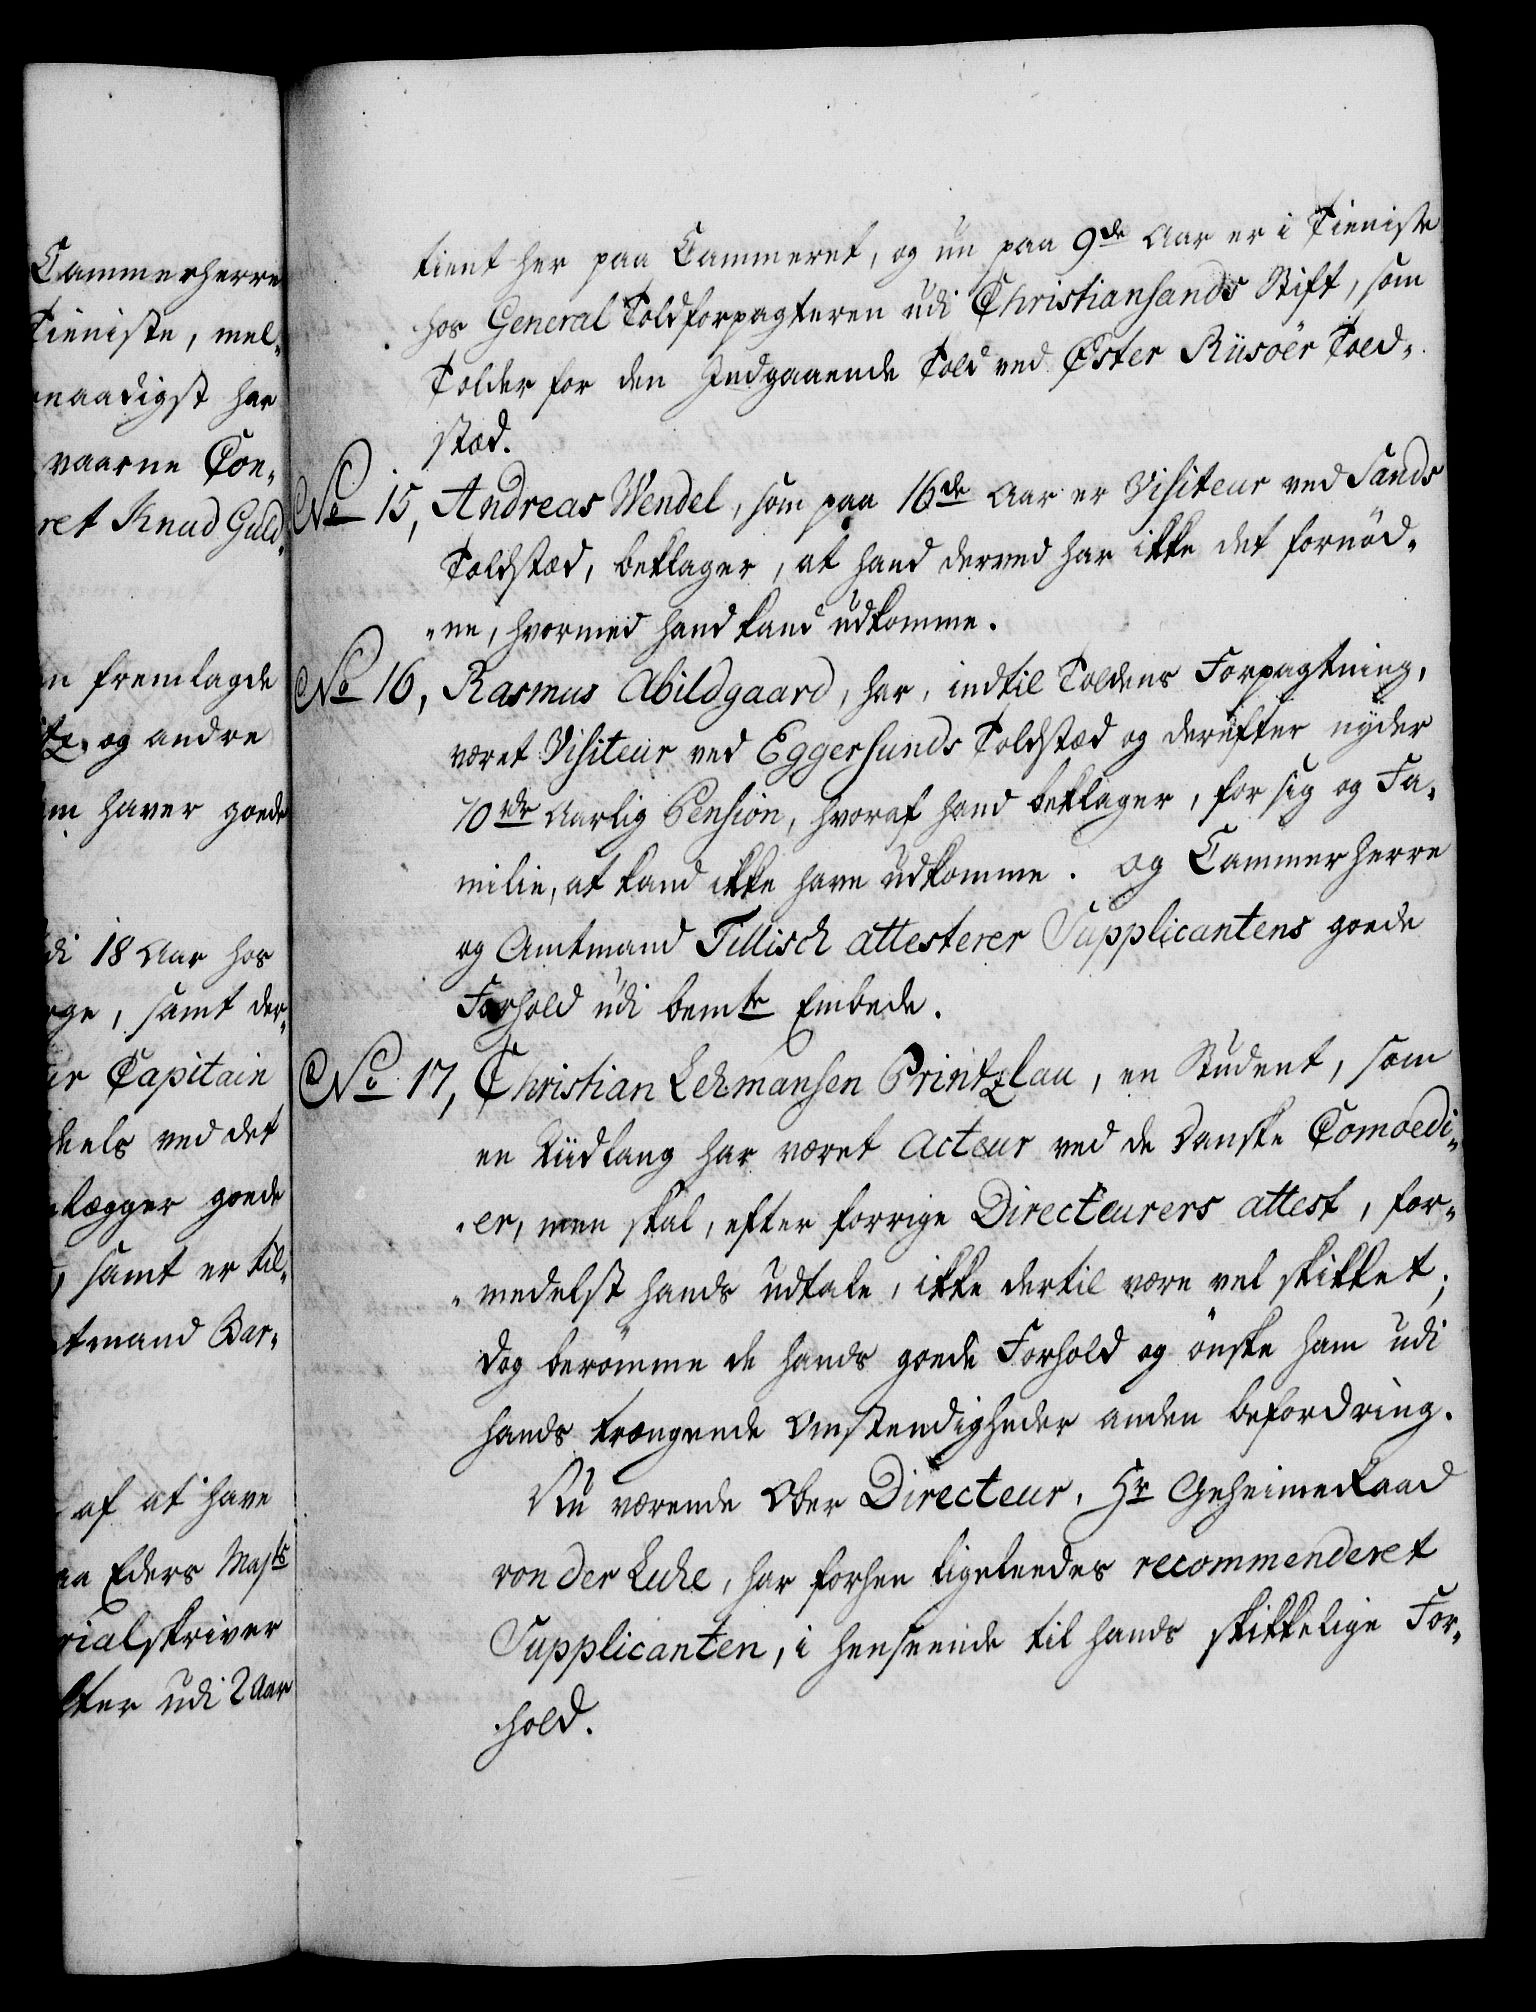 Cammerherre
Tieniste, mel-
naadigst har
vaarne Con-
ret Knud Guld-
n fremlagde
tz, og andre
m haver goede
di 18 Aar hos
rge, samt der-
ur Capitain
deels ved det
lægger goede
, samt er til-
tmand Bar-
af at have
aa Eders Majts
rialskriver
lter udi 2 Aar
tient her paa Cammeret, og nu paa 9de Aar er i Tieniste
hos General Toldforpagteren udi Christiansands Stift, som
Tolder for den Indgaaende Told ved Øster Riisöer Told-
stæd.
No 15, Andreas Wendel, som paa 16de Aar er Visiteur ved Sands
Toldstæd, beklager, at hand derved har ikke det fornöd-
-ne, hvormed hand kand udkomme.
No 16, Rasmus Abildgaard, har, indtil Toldens Forpagtning,
været Visiteur ved Eggersunds Toldstæd og derefter nyder
70 rdr Aarlig Pension, hvoraf hand beklager, for sig og Fa-
milie, at kand ikke have udkomme. og Cammerherre
og Amtmand Tillisch attesterer Supplicantens goede
Forhold udi bemte Embede.
No 17, Christian Lehmansen Printzlau, en Student, som
en Tiidlang har været Acteur ved de Danske Comoedi-
-er, men skal, efter forrige Directeurers attest, for-
-medelst hands udtale, ikke dertil være vel skikket;
dog berömme de hands goede Forhold og önske ham udi
hands trængende Omstendigheder anden befordring.
Nu værende Ober Directeur, Hr Geheimeraad
von der Luhe, har forhen ligeleedes recommenderet
Supplicanten, i henseende til hands skikkelige For-
hold.